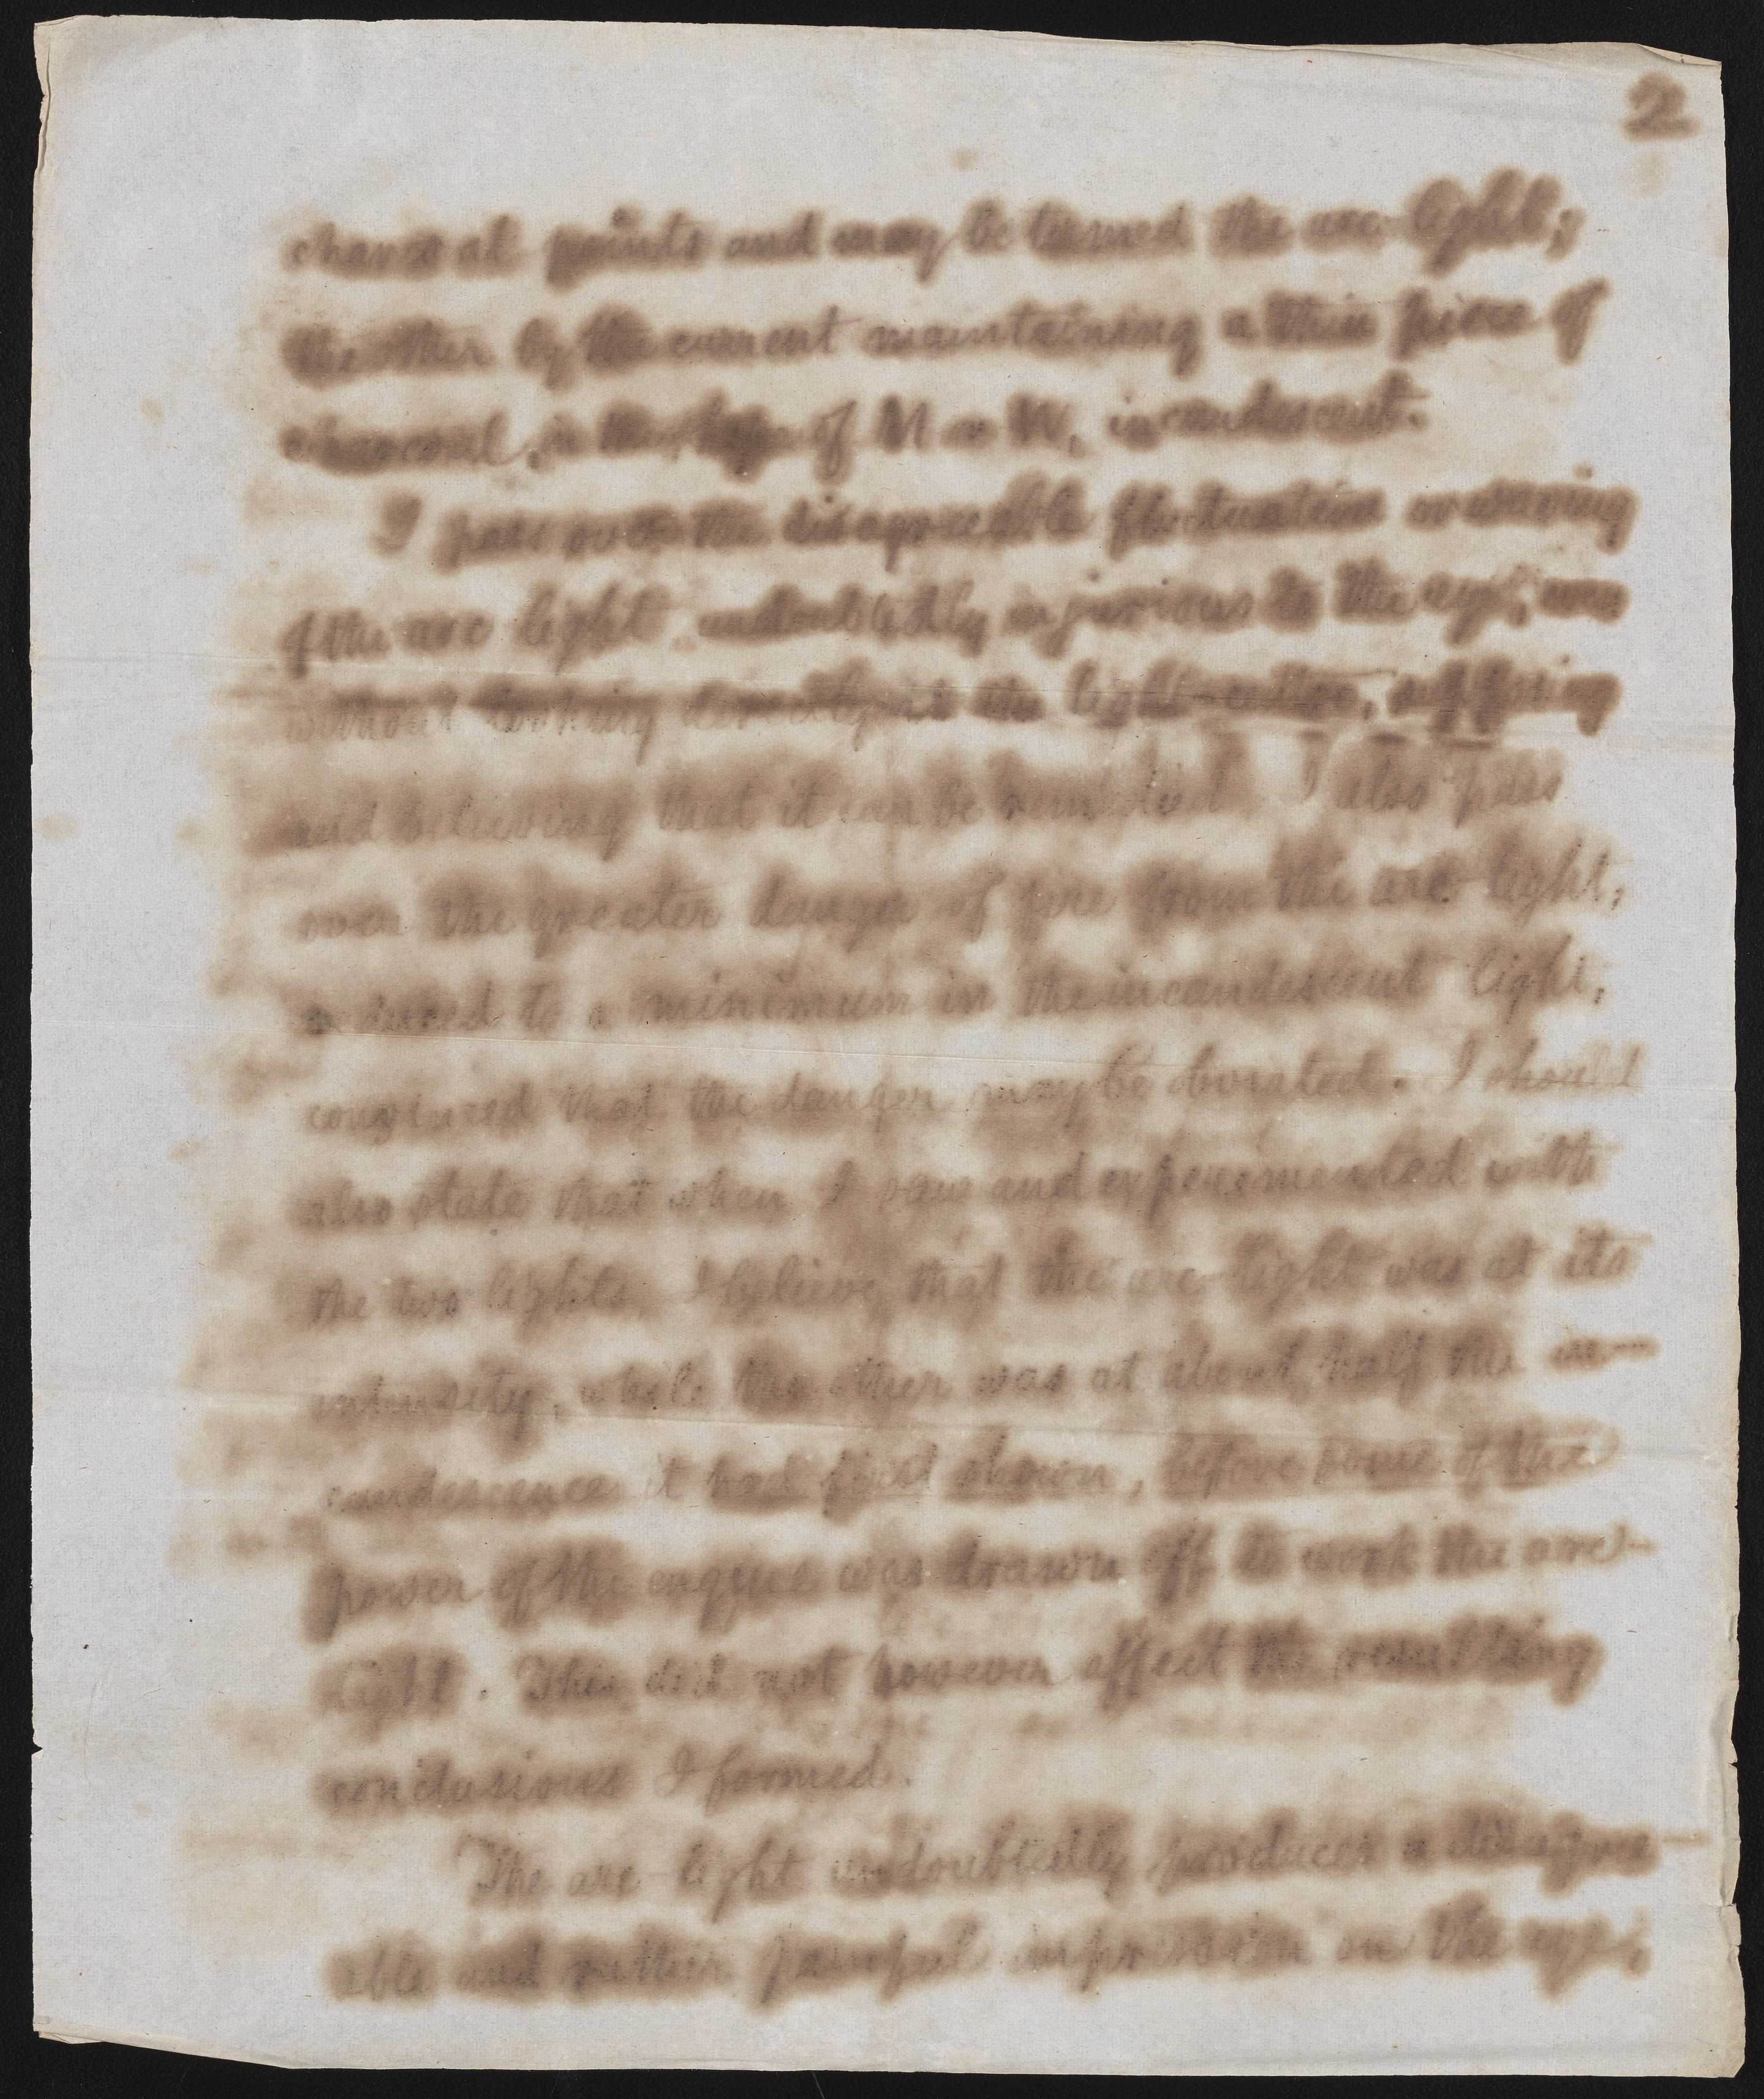 2
charcoal points and may be termed the arc-light;
the other by the current maintaining a thin piece of
charcoal, in the shape of M or W, incandescent.
I pass over the disagreeable fluctuation or
of the arc light undoubtedly injurious to the eyes, even
without looking directly at the light-centre, supposing
and believing that it can be remedied. I also pass
over the greater danger of fire from the arc-light,
reduced to a minimum in the incandescent light,
convinced that the danger may be obviated. I should
also state that when I saw and experimented with
the two lights, I believe that the arc-light was at its
intensity, while the other was at about half the in-
candescence it had first shown, before some of the
power of the engine was drawn off to work the arc-
light. This did not however affect the resulting
conclusions I formed.
The arc-light undoubtedly produces a disagree-
able and rather painful impression on the eyes;